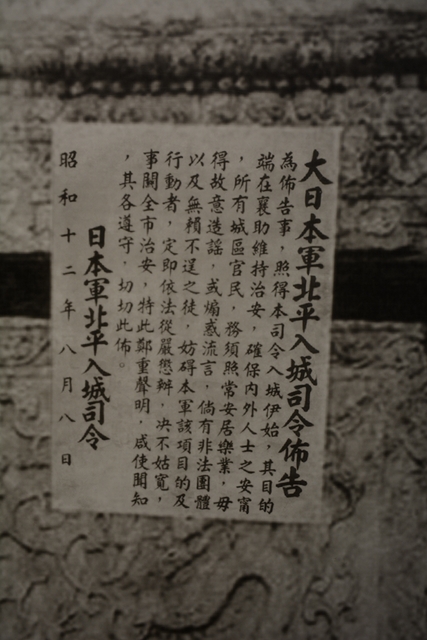 大日本軍北平入城司令佈告
為佈告事，照得本司令入城伊始，其目的
端在襄助維持治安，確保內外人士之安甯
，所有城區官民，務須照常安居樂業，毋
得故意造謡，或煽惑流言，倘有非法團體
以及無賴不逞之徒，妨碍本軍該項目的及
行動者，定即依法從嚴懲辦，决不姑寬，
事關全市治安，特此鄭重聲明，咸使聞知
，其各遵守，切切此佈。
日本軍北平入城司令
昭和十二年八月八日